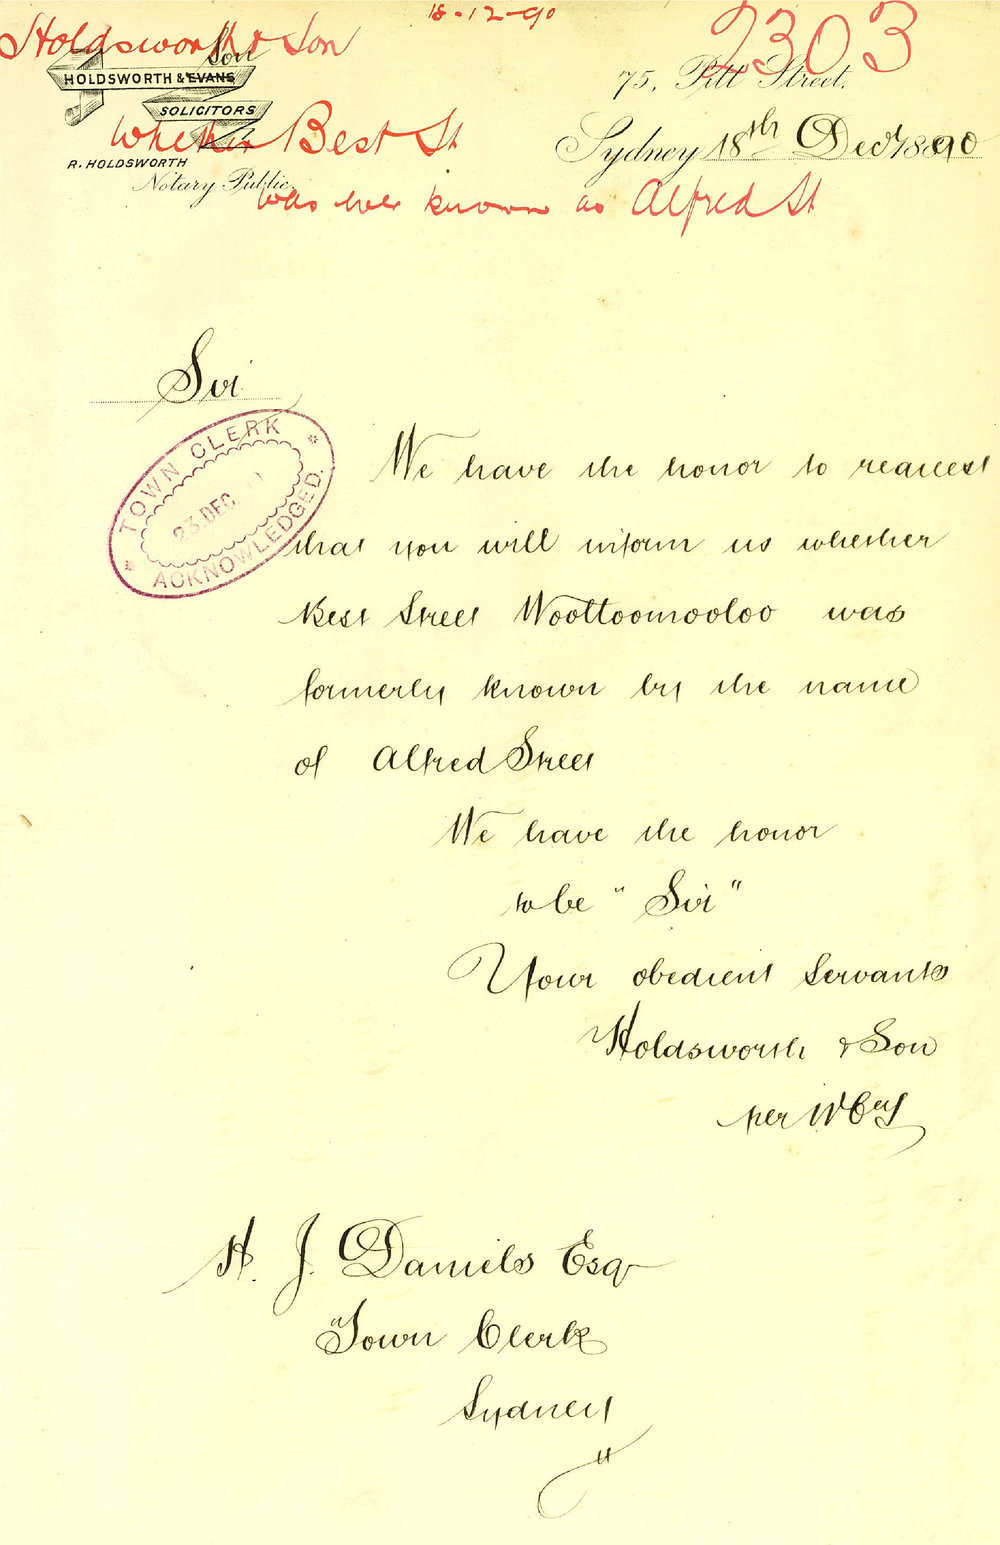 18-12-90
2303
Holdsworth & Son
Son
HOLDSWORTH & EVANS
SOLICITORS
R. HOLDSWORTH
Notary Public
75, Pitt Street.
Sydney 18th Decr 1890
Whether Best St
was ever known as Alfred St
Sir
TOWN CLERK
23 DEC
ACKNOWLEDGED.
We have the honor to request
that you will inform us whether
Best Street Woottoomooloo was
formerly known by the name
of Alfred Street
We have the honor
to be "Sir"
Your obedient Servants
Holdsworth & Son
per
H. J. Daniels Esq
Town Clerk
Sydney